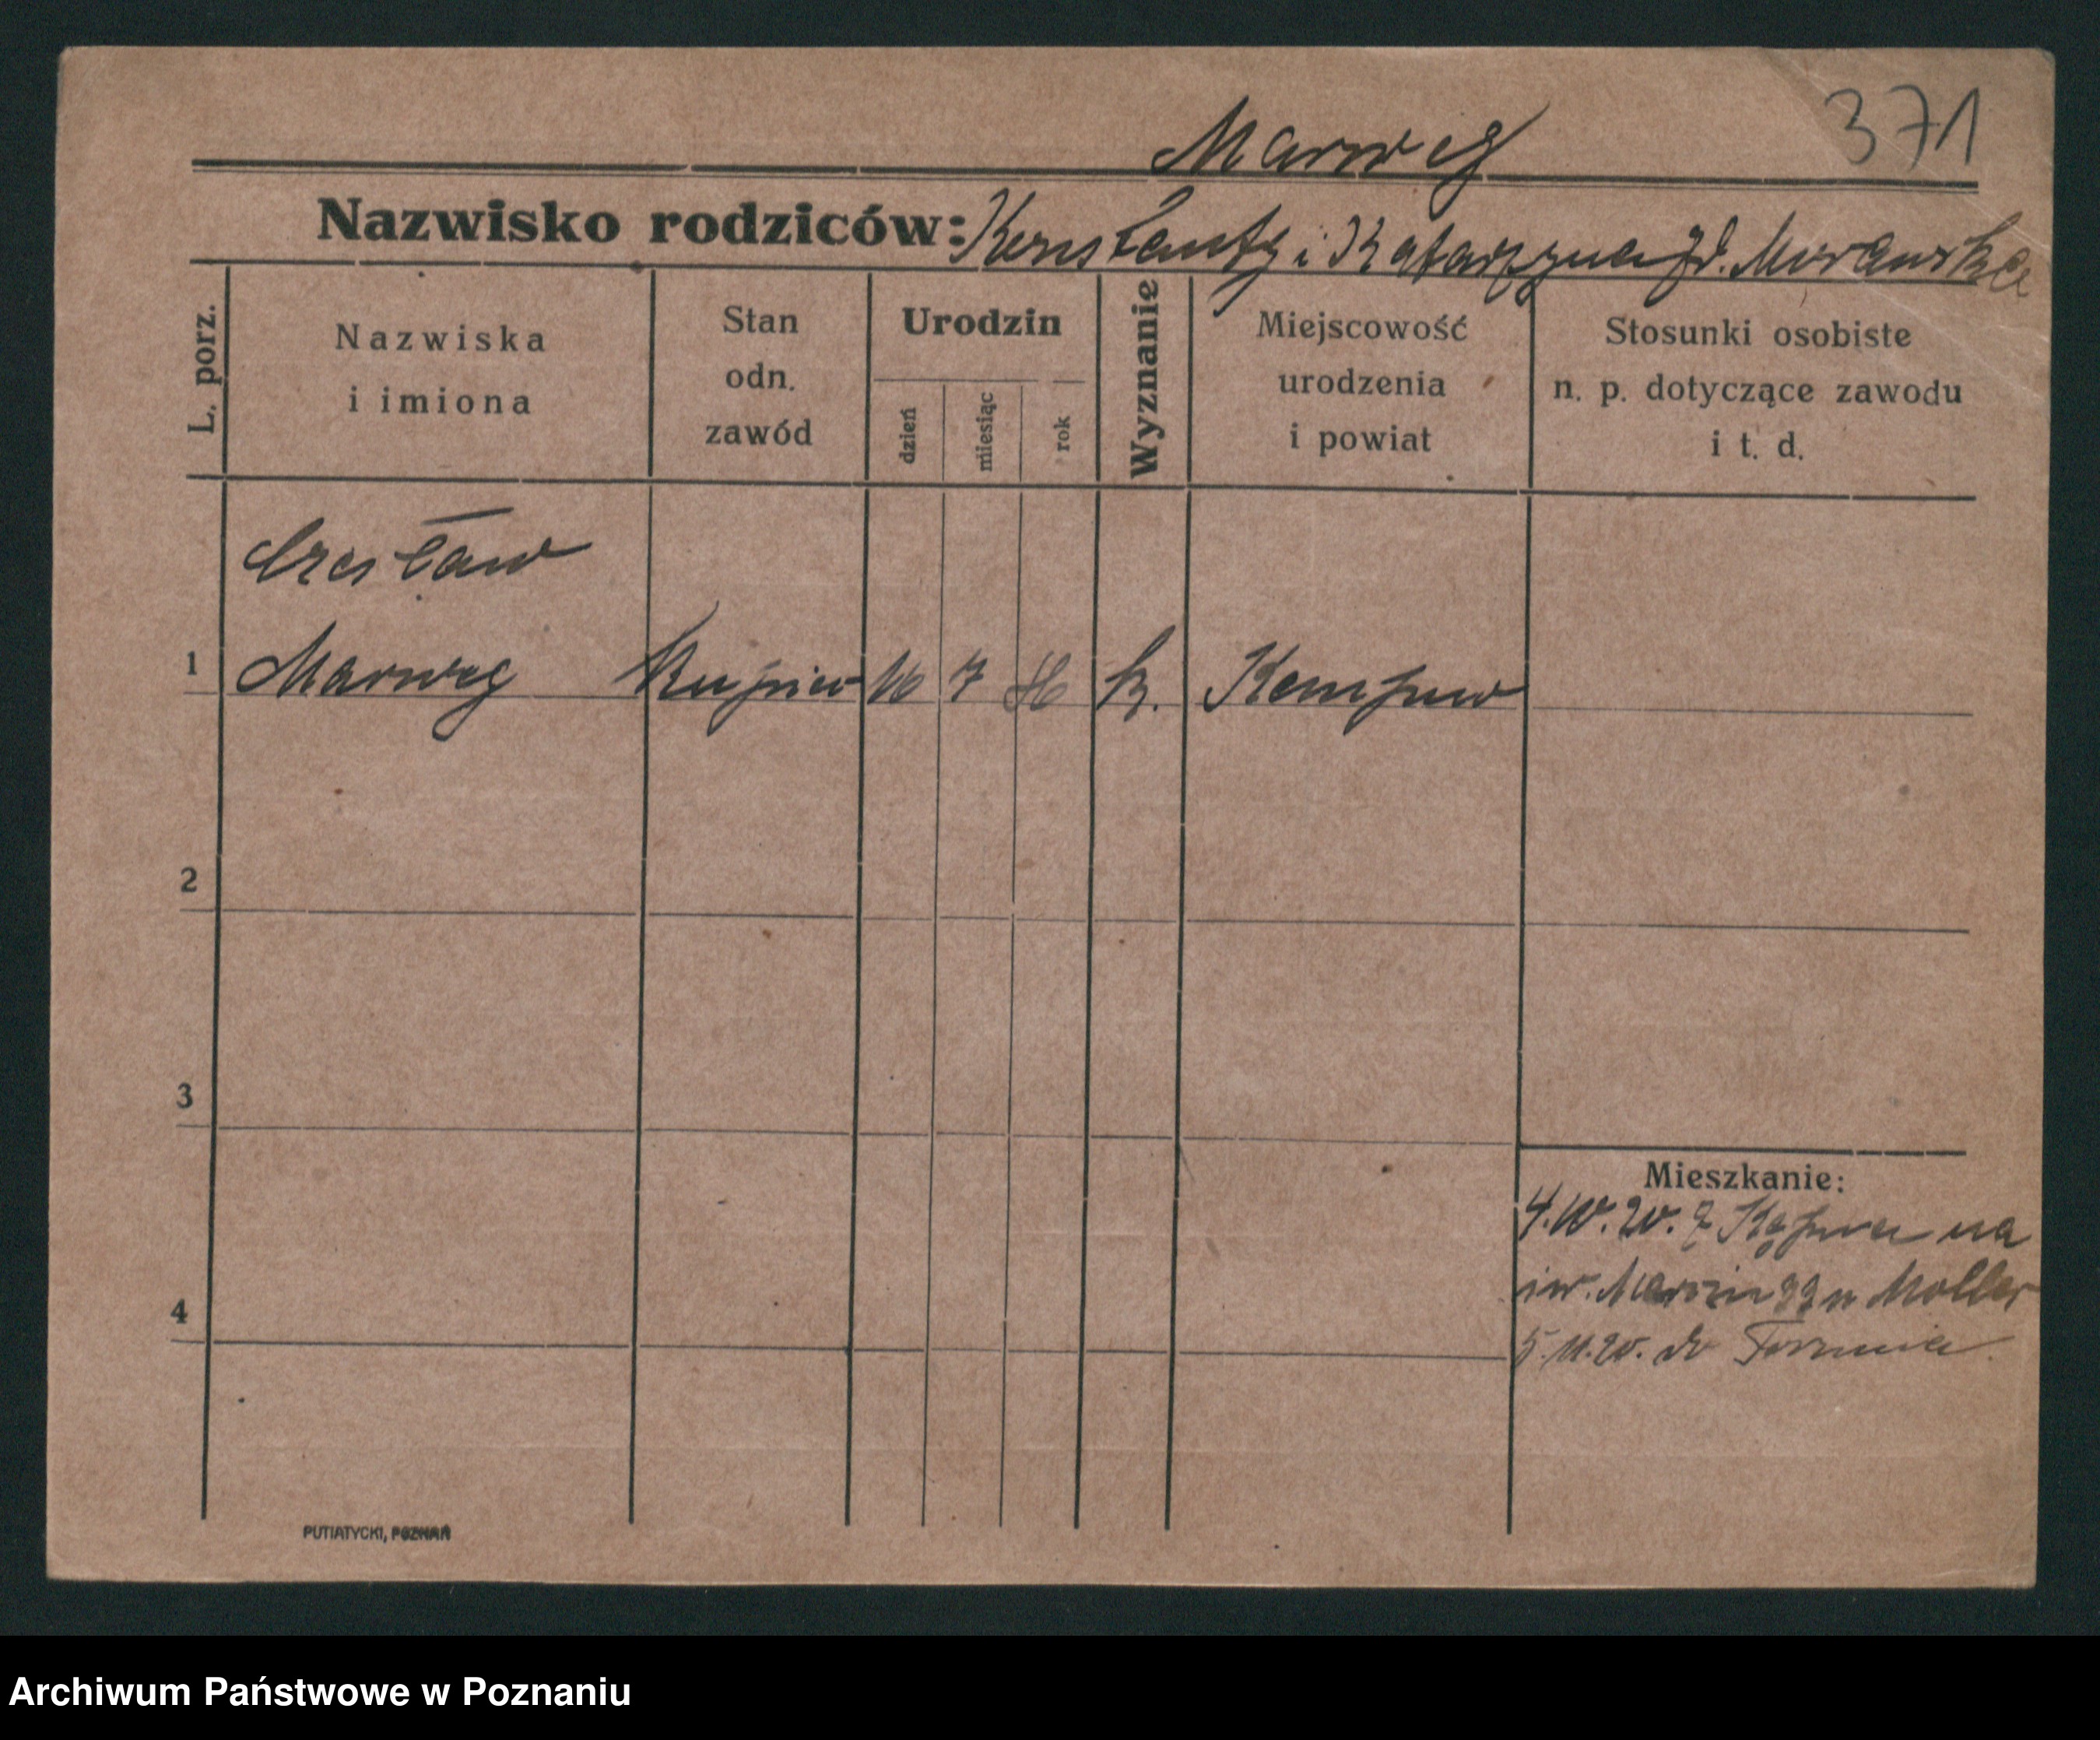 371
Marweg
Nazwisko rodziców: Konstanty i Katarzyna zd. Morawska
L. porz.
Nazwiska
i imiona
Stan
odn.
zawód
Urodzin
dzień
miesiąc
rok
Wyznanie
Miejscowość
urodzenia
i powiat
Stosunki osobiste
n. p. dotyczące zawodu
i t. d.
Czesław
1 Marweg Kupiec 16 7 k. Kempno
2
3
4
Mieszkanie:
4.10.20. z Kępna na
św. Marcin 33 u Moller
5.11.20. do Torunia
PUTIATYCKI, POZNAŃ
Archiwum Państwowe w Poznaniu